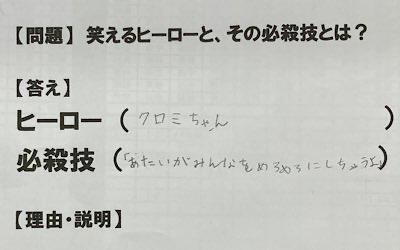 【問題】 笑えるヒーローと、その必殺技とは?
【答え】
ヒーロー ( クロミちゃん )
必殺技 (「あたいがみんなをめろめろにしちゃうよ」)
【理由・説明】